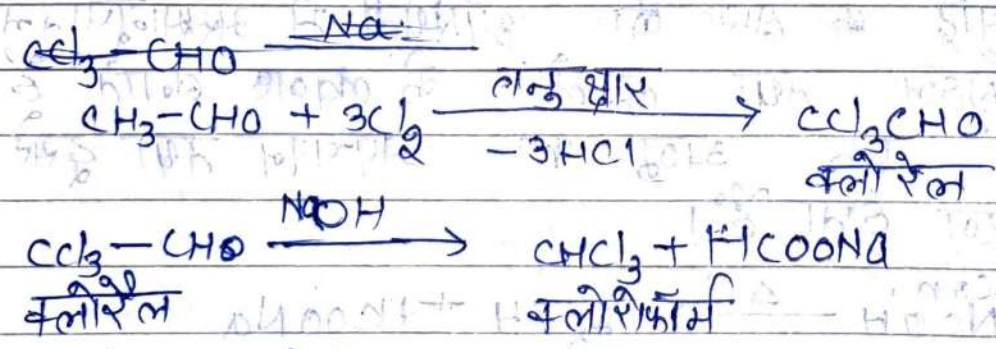 CCl3-CHO Na
CH3-CHO + 3Cl2 तनु क्षार -3HCl → CCl3CHO
क्लोरेल
CCl3-CHO NaOH → CHCl3 + HCOONa
क्लोरैल क्लोरोफॉर्म